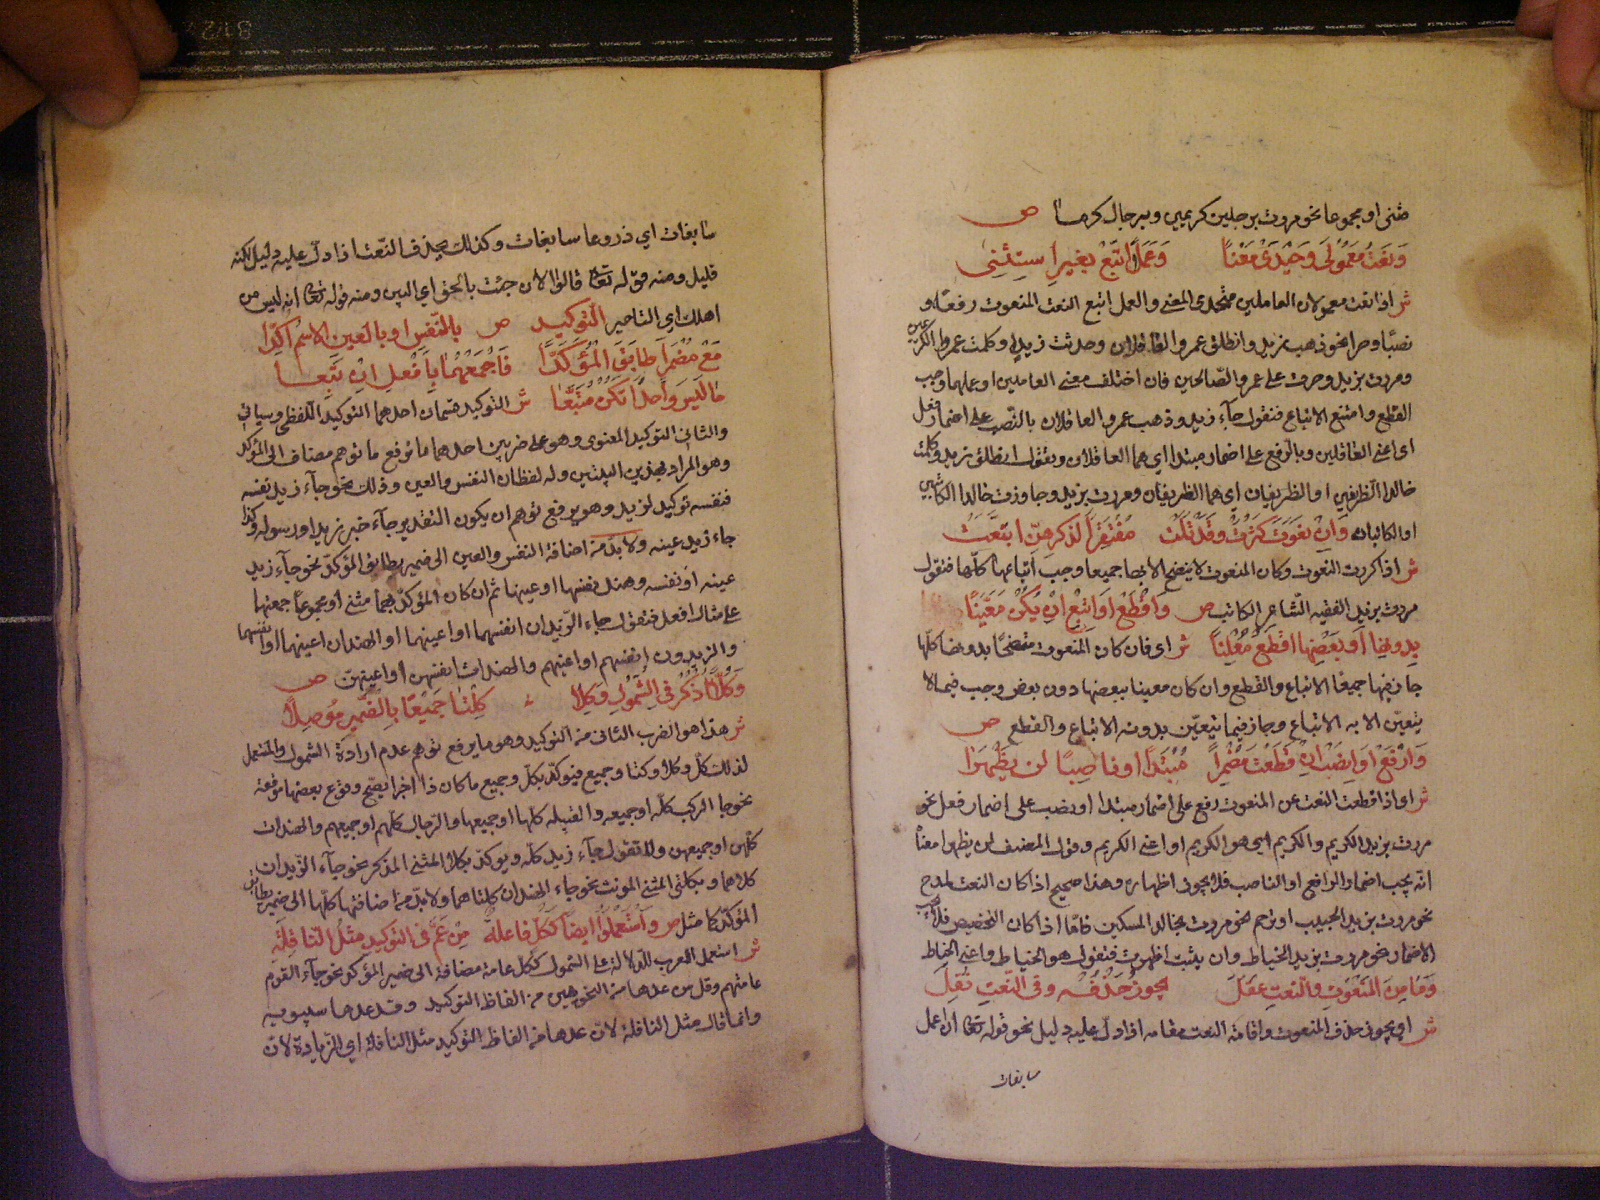 مثنى او مجموعا نحو مررت برجلين كريمين وبرجال كرما ص
وَنَعتُ مَعمُولَى وَحِيْدَىْ مَعْنًا وَعَمَلٍ اتبَعْ بغيرِ استِثنِى
ش اذا نعت معمولان لعاملين متحدى المعنى والعمل اتبع النعت المنعوت رفعا و
نصبًا وجرا نحو ذهب زيد وانطلق عمرو العاقلان وحدثت زيدا وكلمت عمروا الكريمين
ومررت بزيد وجزت على عمرو الصّالحين فان اختلف معنى العاملين او عملهما وجب
القطع وامتنع الاتباع فتقول جآء زيد وذهب عمرو العاقلان بالنّصب على اضمار فعل
اى اعنى العاقلين وبالرفع على اضمار مبتدا اى هما العاقلان وتقول انطلق زيد وكلمت
خالدا الظريفين او الظريفان اى هما الظريفان ومررت بزيد وجاوزت خالدا الكاتبين
او الكاتبان وَاِنْ نعُوْتٌ كثرَتْ وقَدْ تَلَتْ مُفْتَقِرًا لذكرِهِنّ اُتبعَتْ
ش اذا كررت النعوت وكان المنعوت لا يتضح الا بها جميعا وجب اتباعها كلّها فتقول
مررت بزيد الفقيه الشّاعر الكاتب ص وَاقْطَعْ اَوِ اتبِعْ اِنْ يَكُنْ مُعَيَّنًا
بِدُونِهَا اَو بَعْضِهَا اقْطَعْ مُعْلِنًا ش اى فان كان المنعوت متضحًا بدونها كلّها
جاز فيها جميعًا الاتباع والقطع وان كان معينا ببعضها دون بعض وجب فيما لا
يتعيّن الا به الاتباع وجاز فيما يتعيّن بدونه الاتباع والقطع ص
وَارْفَعْ اَوِ انصِبْ اِنْ قَطَعْتَ مُضْمِرًا مُبْتَدَاً اونَاصِبًا لن يَظْهَرَا
ش اى اذا قطعت النعت عن المنعوت رفع على اضمار مبتدا او نصب على اضمار فعل نحو
مررت بزيد الكريم والكريم اى هو الكريم او اعنى الكريم وقول المصنف لن يظهرا معناه
انّه يجب اضمار الرافع او الناصب فلا يجوز اظهاره وهذا صحيح اذا كان النعت لمدح
نحو مررت بزيد الحبيب او ترحم نحو مررت بخالد المسكين فامّا اذا كان لتخصيص فلا يجب
الاضمار نحو مررت بزيد الخياط وان شئت اظهرت فتقول هو الخياط واعنى الخياط
وَمَا مِنَ المَنعُوْتِ وَالنّعتِ عُقِلْ يَجوزُ حَذْفُهُ وفى النّعتِ يَقِلّ
ش اى يجوز حذف المنعوت واقامة النعت مقامه اذا دلّ عليه دليل نحو قوله تعالى ان اعمل
سابغات
سابغات اى ذروعا سابغات وكذلك يحذف النّعت اذا دلّ عليه دليل لكنه
قليل ومنه قوله تعالى قالوا الان جئت بالحق اى البين ومنه قوله تعالى انه ليس من
اهلك اى الناجين التّوكيد ص بالنّفسِ او بالعَينِ الاسْمُ اُكِّدَا
مَعْ مُضْمَرٍ طَابَقَ المُؤَكَّدَا فَاجْمَعْهُمَا بِاَفْعُلٍ اِنْ تَبِعَا
مَا لَيْسَ وَاحِدًا تَكُنْ مُتَّبِعًا ش التوكيد قسمان احدهما التوكيد اللفظى وسياتى
والثانى التوكيد المعنوى وهو على ضربين احدهما ما يرفع ما توهم مضاف الى المؤكد
وهو المراد بهذين البيتين وله لفظان النفس والعين وذلك نحو جآء زيد نفسه
فنفسه توكيد لزيد وهو يرفع توهم ان يكون التقدير جآء خبر زيد او رسوله وكذا
جاء زيد عينه ولا بدّ من اضافة النفس والعين الى ضمير يطابق المؤكدّ نحو جآء زيد
عينه او نفسه وهند نفسها او عينها ثم ان كان المؤكدّ بهما مثنى او مجموعًا جمعتهما
على مثال افعل فتقول جاء الزّيدان انفسهما او اعينهما او الهندان اعينهما او انفسهما
والزيدون انفسهم او اعينهم والهندات انفسهن او اعينهن ص
وَكُلًّا اذْكُرْ فى الشُّمُولِ وَكِلَا كِلْتَا جَمِيْعًا بِالضَّمِيرِ مُوْصِلاً
ش هذا هو الضرب الثانى من التوكيد وهو ما يرفع توهم عدم ارادة الشمول والمستعمل
لذلك كلّ وكلا وكلتا وجميع فيؤكّد بكلّ وجميع ما كان ذا اجزا يصحّ وقوع بعضها موقعه
نحو جا الركب كلّه او جميعه والقبيلة كلّها او جميعها والرّجال كلّهم او جميعهم والهندات
كلّهن او جميعهن ولا تقول جآء زيد كلّه ويؤكدّ بكلا المثنى المذكر نحو جآء الزّيدان
كلاهما وبكلتى المثنى المونث نحو جاء الهندان كلتاهما ولا بدّ من اضافتها كلّها الى ضمير يطابق
المؤكدّ كما مثل ص وَاسْتَعْمَلُوْا ايضًا كَكُلٍّ فَاعِلَهْ مِنْ عَمَّ فى التّوكيدِ مثلُ النّافِلَهْ
ش استعمل العرب للدّلالة على الشّمول ككلّ عامة مضافة الى ضمير المؤكد نحو جآء القوم
عامّتهم وقل من عدها من النحويين من الفاظ التوكيد وقد عدها سيبويه
وانما قال مثل النافلة لانّ عدها من الفاظ التوكيد مثل النافلة اى الزّيادة لانّ